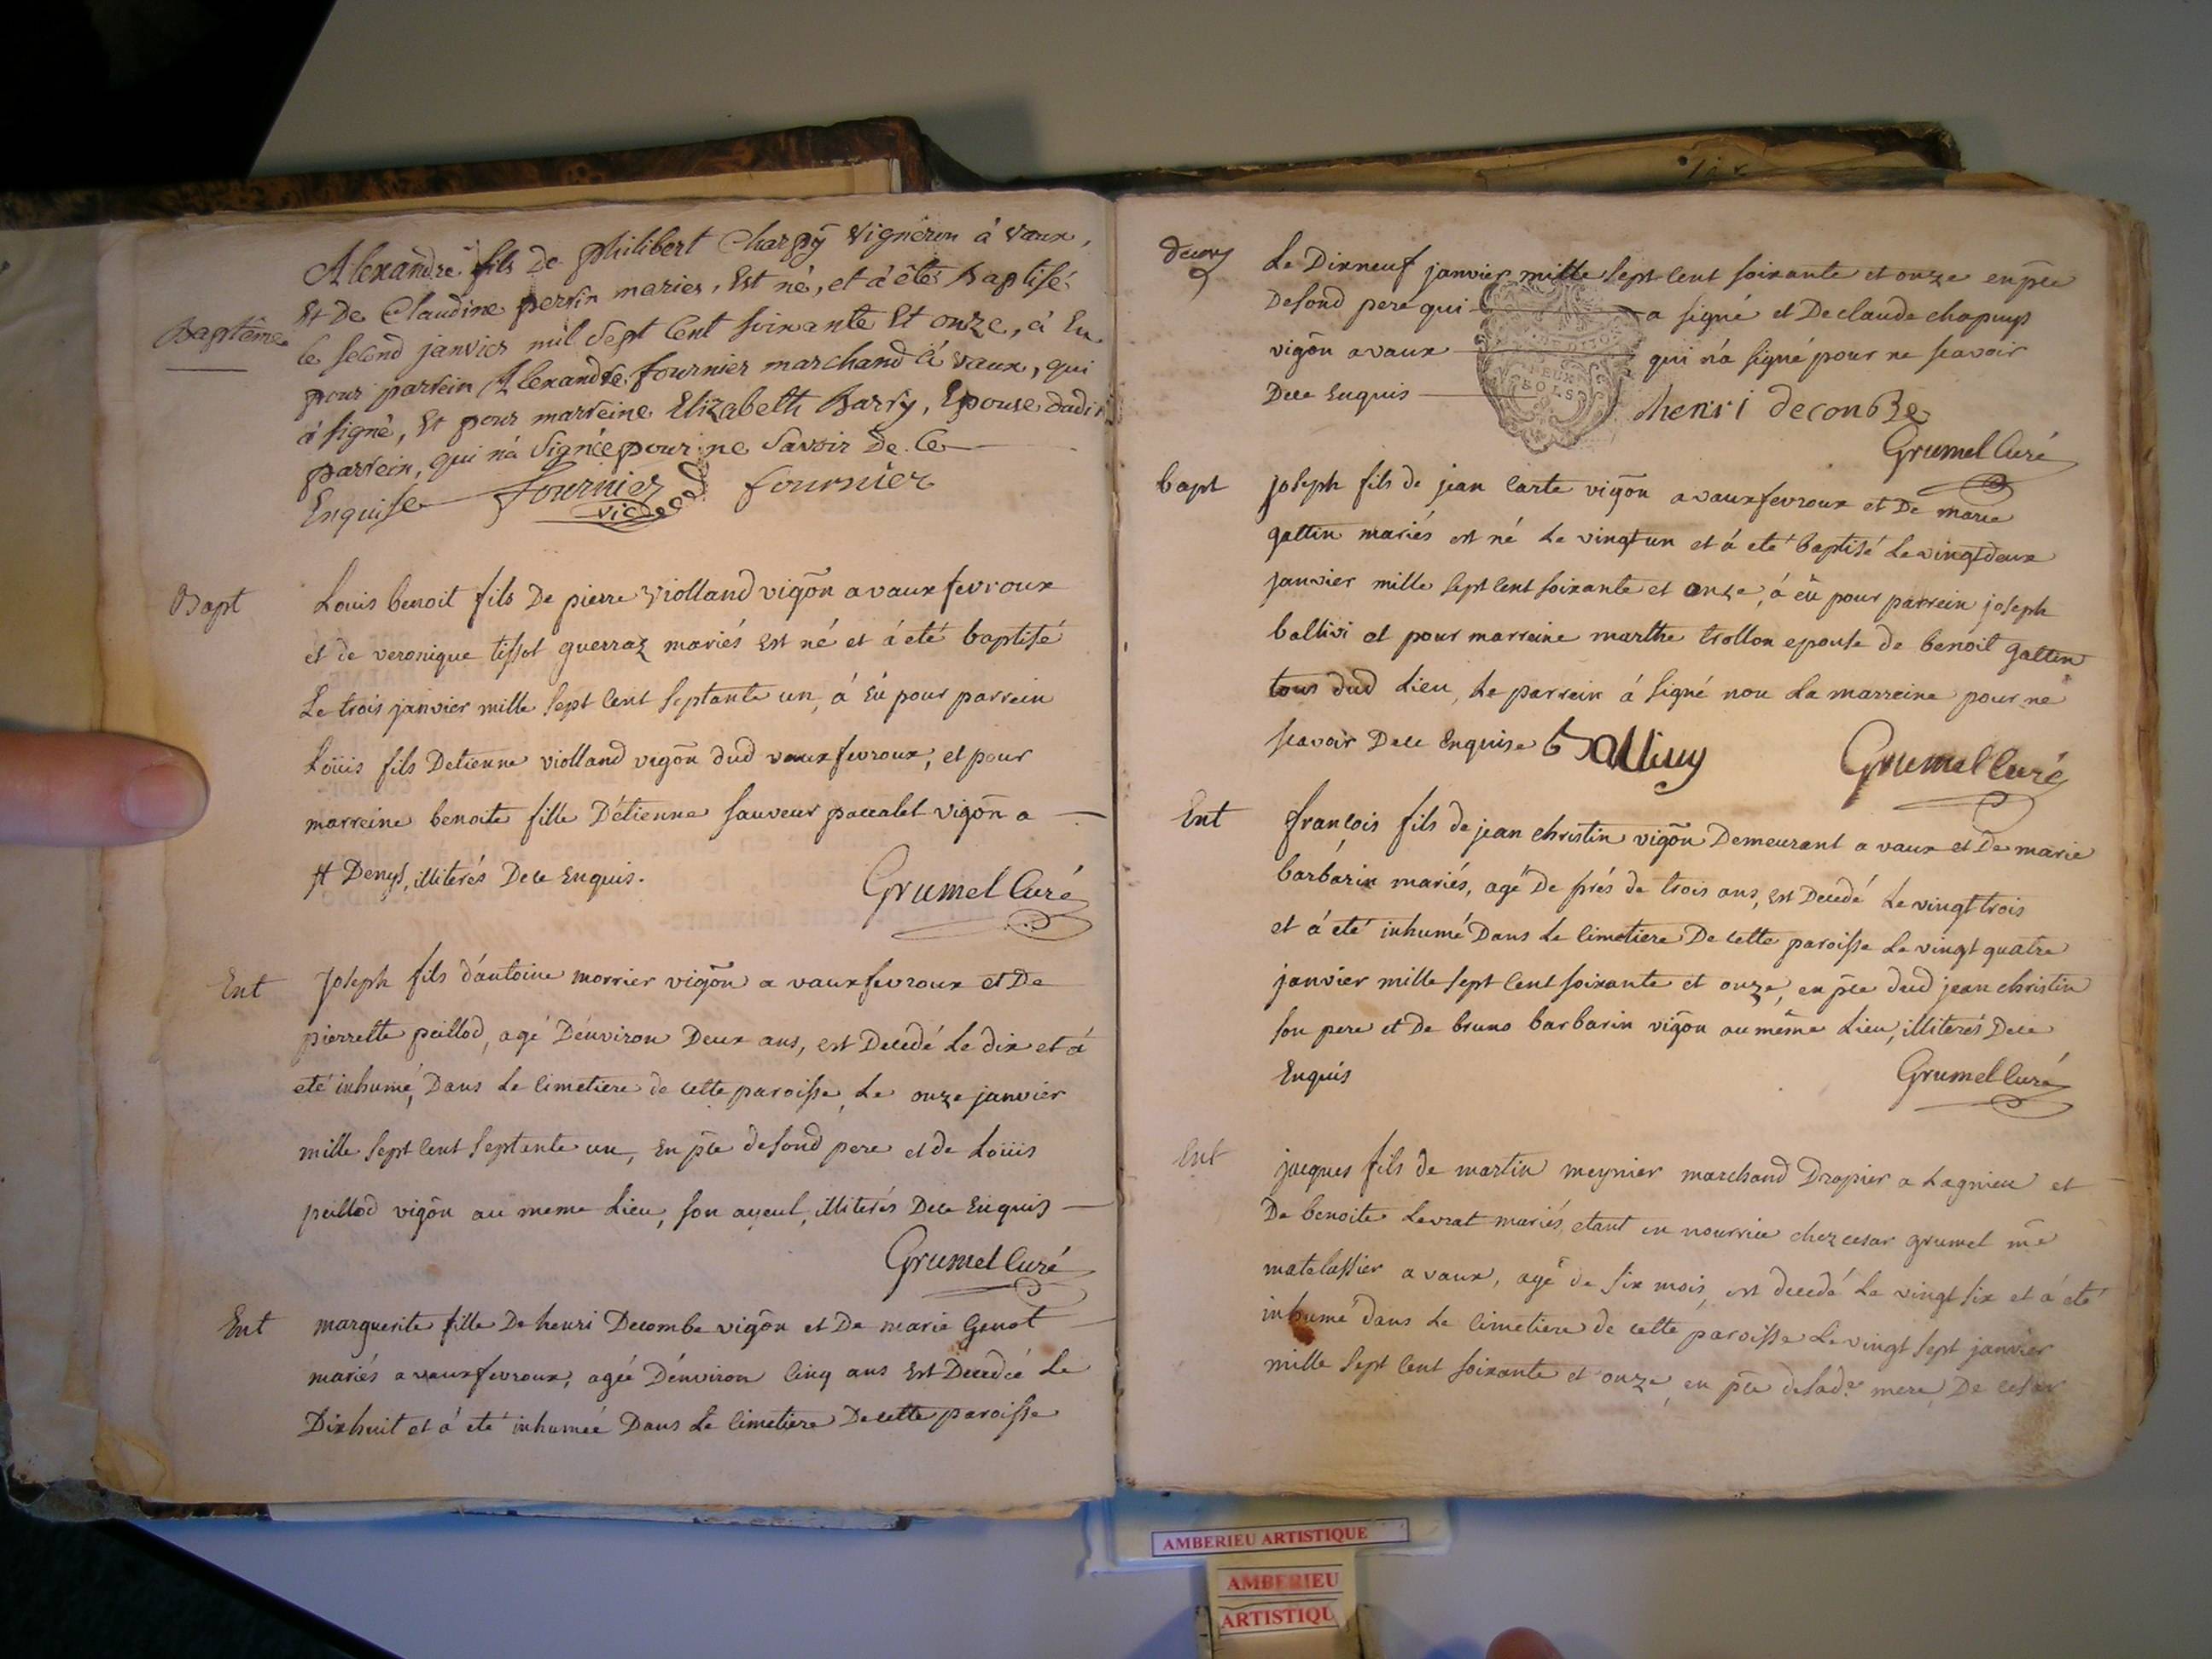 Baptême
Alexandre fils De philibert Charpÿ Vigneron à Vaux,
Et De Claudine perrin maries, Est né, et a été Baptisé
le second janvier mil Sept Cent soixante Et onze, à Eu
pour parrein Alexandre fournier marchand à vaux, qui
a signé, Et pour marreine Elizabeth Barry, Epouse dudit
parrein, qui n'a Signée pour ne Savoir De Ce
Enquise fournier vic fournier
Bapt
Louis benoit fils De pierre violland vigōn a vauxfevroux
et de veronique tissot guerraz mariés Est né et á eté baptisé
Le trois janvier mille sept cent septante un, á Eû pour parrein
Loüis fils Detienne violland vigōn dud vauxfevroux, et pour
marreine benoite fille D'étienne sauveur paccalet vigōn a
st Denys, illiterés De ce Enquis.
Grumel Curé
Ent
Joseph fils d'antoine morrier vigōn a vauxfevroux et De
pierrette peillod, agé D'énviron Deux ans, est Decedé Le dix et á
eté inhumé, Dans Le cimetiere de cette paroisse, Le onze janvier
mille sept cent septante un, en pce desond pere et de Loüis
peillod vigōn au meme Lieu, son ayeul, illiterés De ce Enquis
Grumel Curé
Ent
marguerite fille De henri Decombe vigōn et De marie Genot
mariés a vauxfevroux, agée D'énviron cinq ans Est Decedée Le
Dixhuit et á eté inhumée Dans Le cimetiere De cette paroisse
Le Dixneuf janvier mille sept cent soixante et onze en pce
Desond pere qui a signé et De claude chapuys
vigōn a vaux qui n'a signé pour ne scavoir
De ce Enquis
henri deconbe
Grumel Curé
bapt
Joseph fils de jean Carte vigōn a vauxfevroux et De marie
gattin mariés est né Le vingt un et á eté baptisé Le vingt deux
janvier mille sept cent soixante et onze, á eû pour parrein joseph
ballivi et pour marreine marthe trollon epouse de benoit gatten
tous dud Lieu, Le parrein á signé non La marreine pour ne
scavoir De ce Enquise Balliuy
Grumel Curé
Ent
françois fils de jean christin vigōn Demeurant a vaux et De marie
barbarin mariés, agé De prés de trois ans, est Decedé Le vingt trois
et á eté inhumé Dans Le cimetiere De cette paroisse Le vingt quatre
janvier mille sept cent soixante et onze, en pce dud jean christin
son pere et De bruno barbarin vigōn au même Lieu, illiterés De ce
Enquis
Grumel Curé
Ent
jacques fils de martin meynier marchand Drapier a Lagnieu et
De benoite Levrat mariés, etant en nourrice chez cesar grumel me
matelassier a vaux, agé de six mois, est decedé Le vingt six et á eté
inhumé dans Le cimetiere de cette paroisse Le vingt sept janvier
mille sept cent soixante et onze, en pce desade mere, De cesar
AMBERIEU ARTISTIQUE
AMBERIEU
ARTISTIQU